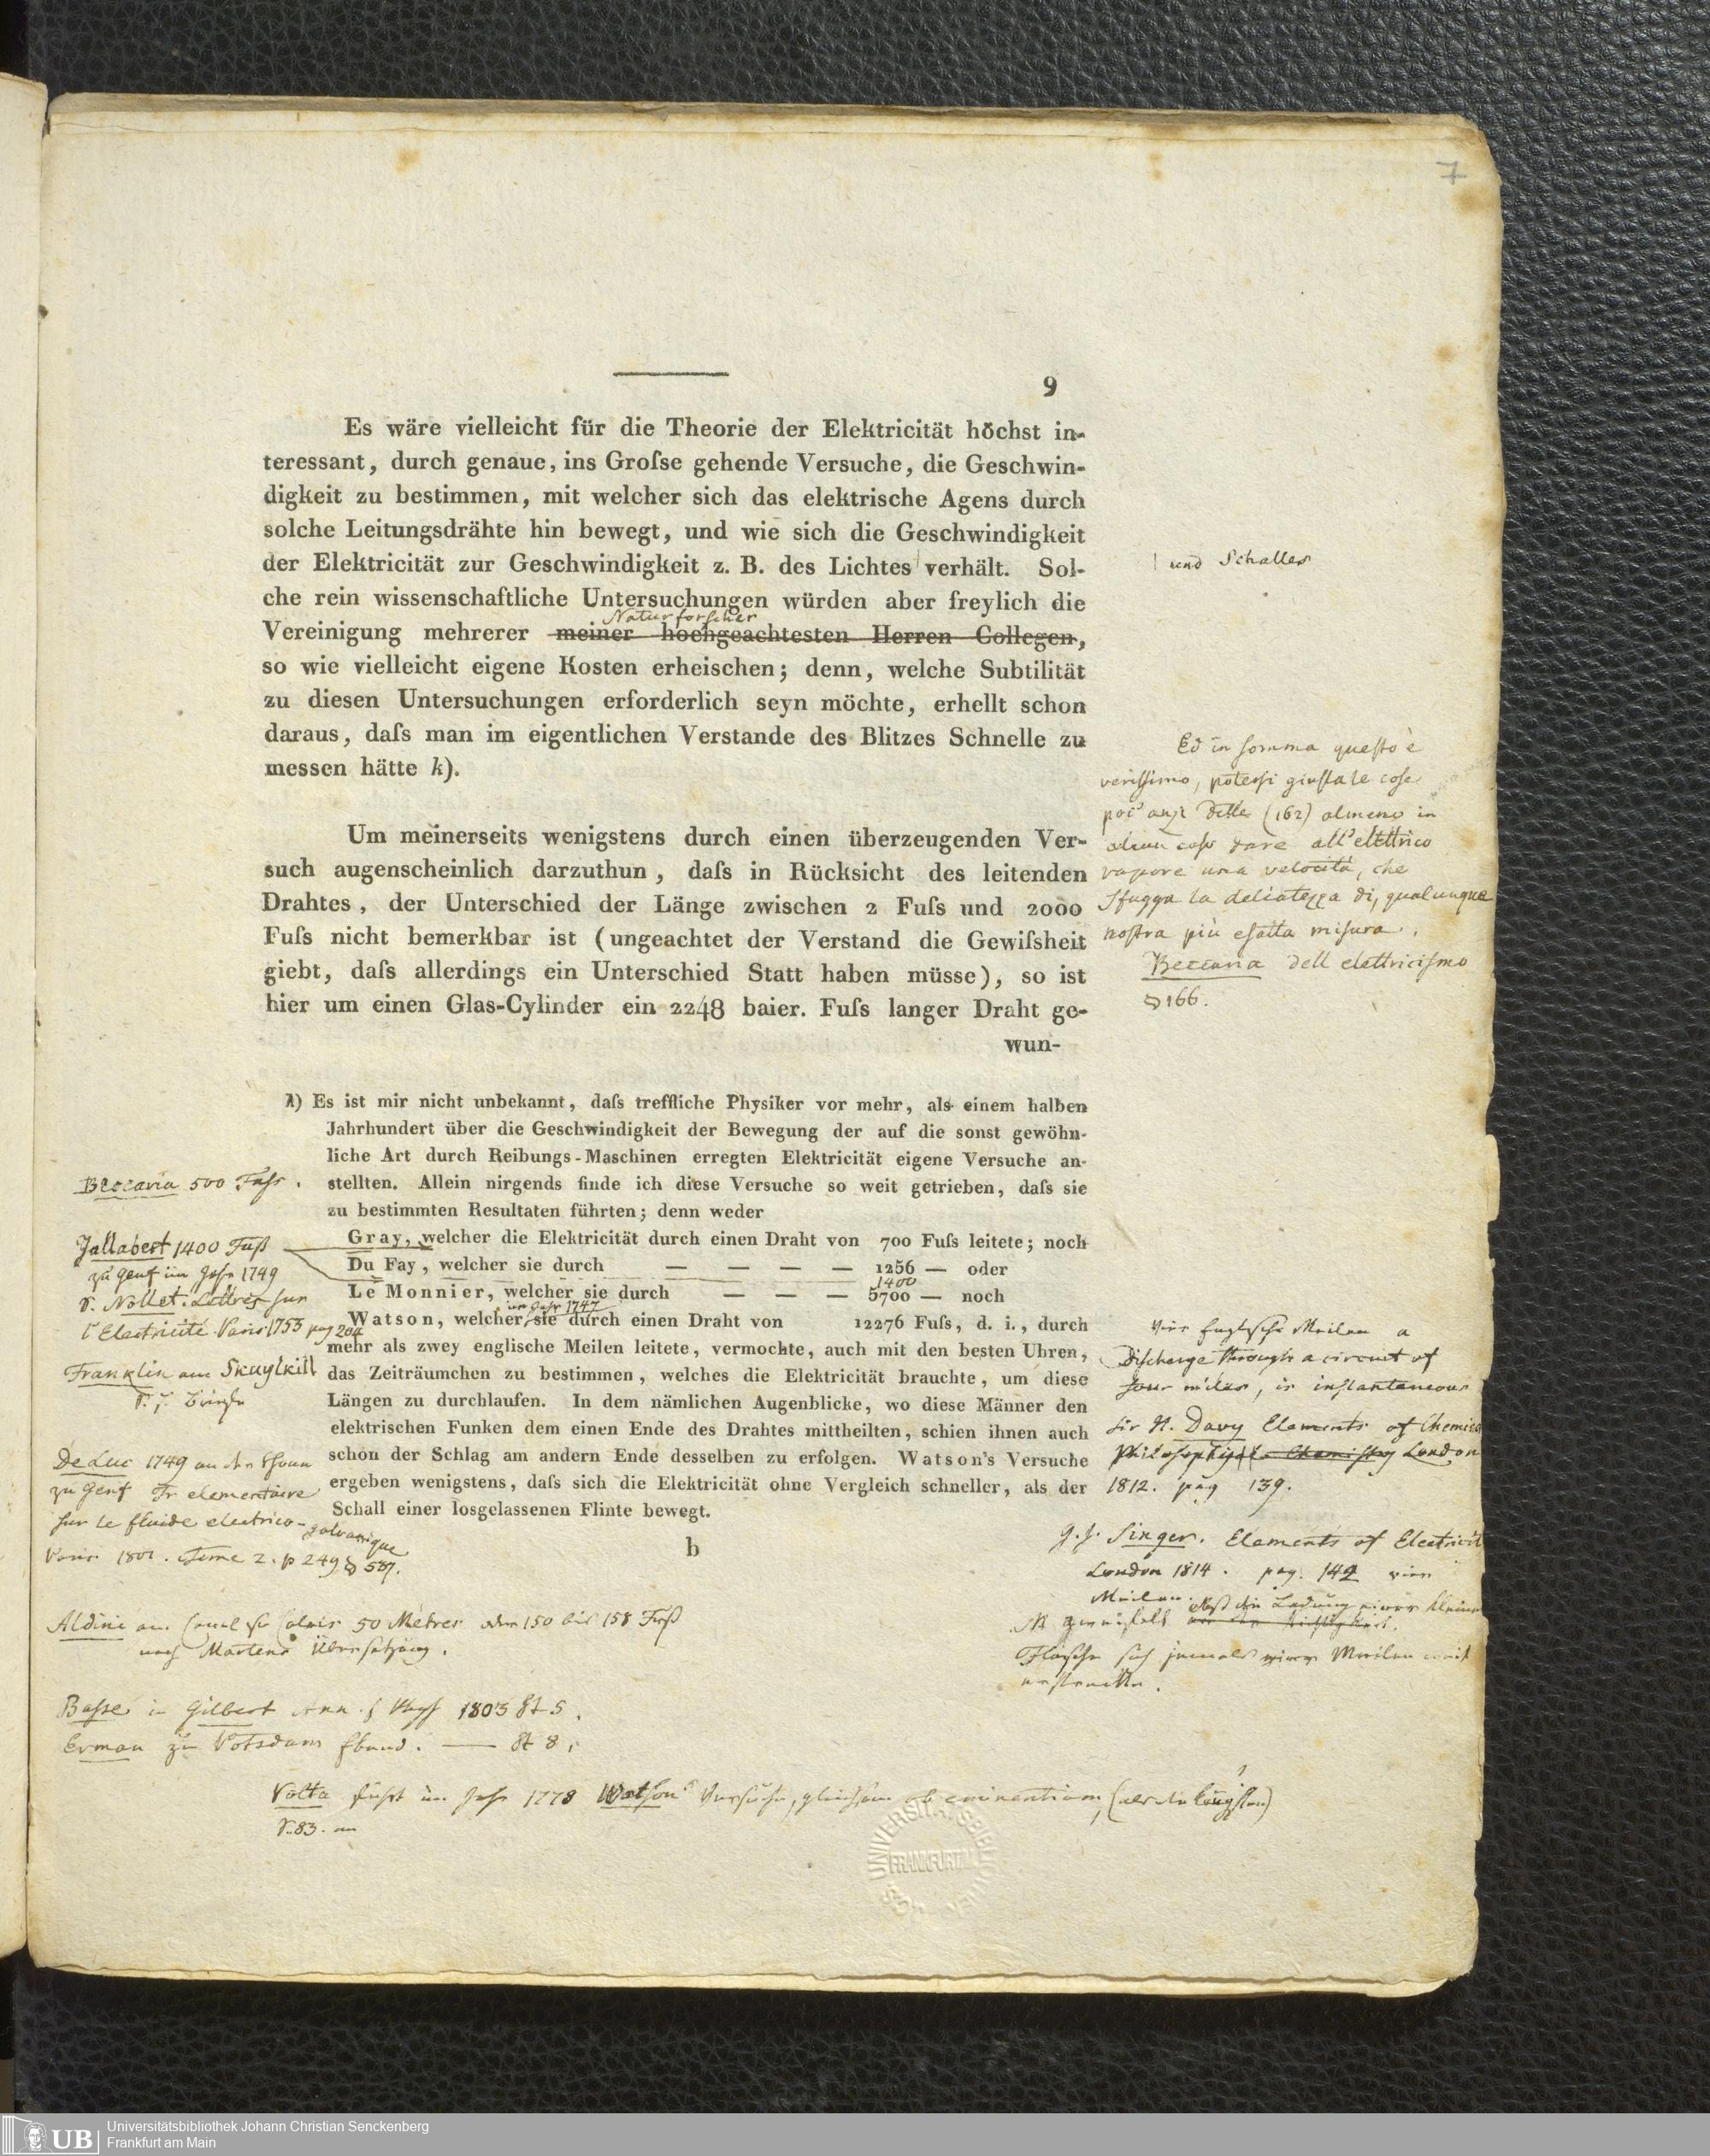 7
9
Es wäre vielleicht für die Theorie der Elektricität höchst in-
teressant, durch genaue, ins Groſse gehende Versuche, die Geschwin-
digkeit zu bestimmen, mit welcher sich das elektrische Agens durch
solche Leitungsdrähte hin bewegt, und wie sich die Geschwindigkeit
der Elektricität zur Geschwindigkeit z. B. des Lichtes verhält. Sol-
und Schalles
che rein wissenschaftliche Untersuchungen würden aber freylich die
Naturforscher
Vereinigung mehrerer meiner hochgeachtesten Herren Collegen,
so wie vielleicht eigene Kosten erheischen; denn, welche Subtilität
zu diesen Untersuchungen erforderlich seyn möchte, erhellt schon
daraus, daſs man im eigentlichen Verstande des Blitzes Schnelle zu
messen hätte k).
Ed in somma questo è
verissimo, potersi giusta le cose
poc' anzi dette (162) almeno in
alcun caso dare all' elettrico
vapore una velocità, che
sfugga la delicatezza di qualunque
nostra più esatta misura.
Beccaria dell elettricismo
§ 166.
Um meinerseits wenigstens durch einen überzeugenden Ver-
such augenscheinlich darzuthun, daſs in Rücksicht des leitenden
Drahtes, der Unterschied der Länge zwischen 2 Fuſs und 2000
Fuſs nicht bemerkbar ist (ungeachtet der Verstand die Gewiſsheit
giebt, daſs allerdings ein Unterschied Statt haben müsse), so ist
hier um einen Glas-Cylinder ein 2248 baier. Fuſs langer Draht ge-
wun-
k) Es ist mir nicht unbekannt, daſs treffliche Physiker vor mehr, als einem halben
Jahrhundert über die Geschwindigkeit der Bewegung der auf die sonst gewöhn-
liche Art durch Reibungs-Maschinen erregten Elektricität eigene Versuche an-
stellten. Allein nirgends finde ich diese Versuche so weit getrieben, daſs sie
zu bestimmten Resultaten führten; denn weder
Gray, welcher die Elektricität durch einen Draht von 700 Fuſs leitete; noch
Du Fay, welcher sie durch — — — — 1256 — oder
1400
Le Monnier, welcher sie durch — — — 5700 — noch
im Jahr 1747
Watson, welcher sie durch einen Draht von 12276 Fuſs, d. i., durch
mehr als zwey englische Meilen leitete, vermochte, auch mit den besten Uhren,
das Zeiträumchen zu bestimmen, welches die Elektricität brauchte, um diese
Längen zu durchlaufen. In dem nämlichen Augenblicke, wo diese Männer den
elektrischen Funken dem einen Ende des Drahtes mittheilten, schien ihnen auch
schon der Schlag am andern Ende desselben zu erfolgen. Watson's Versuche
ergeben wenigstens, daſs sich die Elektricität ohne Vergleich schneller, als der
Schall einer losgelassenen Flinte bewegt.
b
Beccaria 500 Fuſs.
Jallabert 1400 Fuß
zu Genf im Jahr 1749
v. Nollet. Lettres sur
l'Electricité. Paris 1753 pag 204
Franklin am Skuylkill
De Luc 1749 an der Rhone
zu Genf Tr elementaire
sur le fluide electrico-galvanique
Paris 1801. Tome 2. p 249 § 587.
Aldini 50 Mètres oder 150 bis 158 Fuß
nach Martens Übersetzung.
Basse in Gilbert Ann. d Phys 1803 St 5.
Erman zu Potsdam ebend. — St 8.
Volta führt im Jahr 1778 Watsons Versuche, gleichsam ob eminentiam, (als die längsten)
V. 83. an
Vier Englische Meilen a
Discharge through a circuit of
four miles, is instantaneous
Sir H. Davy Elements of Chemical
Philosophy Chemistry London
1812. pag 139.
G. J. Singer. Elements of Electricit
London 1814. pag. 142 vier
Meilen.
N. zweifelt daß die Ladung einer kleinen
Flasche sich jemals vier Meilen weit
erstreckte.
UNIVERSITÄTSBIBLIOTHEK
FRANKFURT
UB
Universitätsbibliothek Johann Christian Senckenberg
Frankfurt am Main